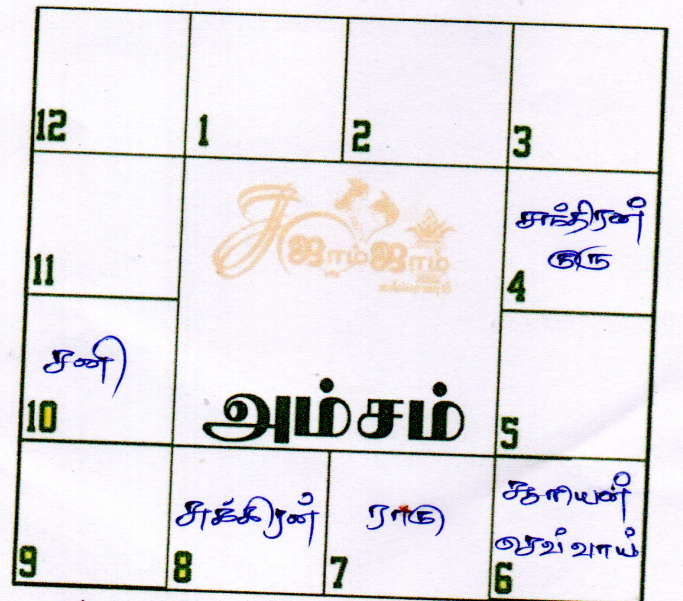 12
1
2
3
11
ஜாம்ஜாம்
சந்திரன்
குரு
4
சனி
10
அம்சம்
5
9
சுக்கிரன்
8
ராகு
7
சூரியன்
செவ்வாய்
6